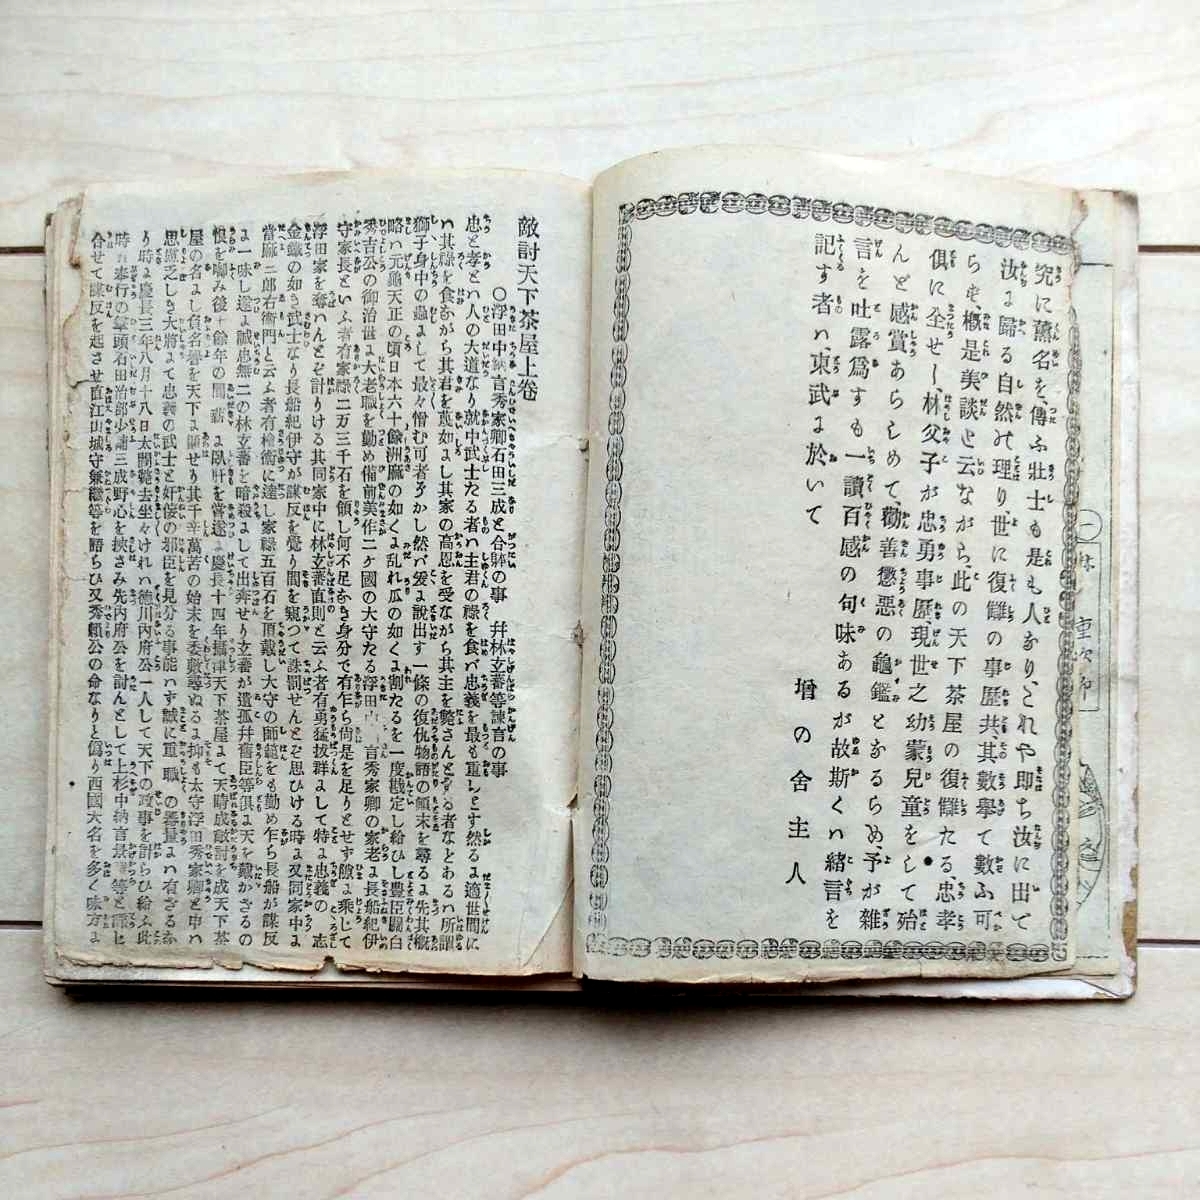 究に薫名を、傳ふ壯士も是も人なり、これや即ち汝に出て
汝に歸る自然の理り、世に復讐の事歴共、其數擧て數ふ可
らず、概是美談と云ながら、此の天下茶屋の復讐たる、忠孝
俱に全せし、林父子が忠勇事歴、現世之幼蒙兒童をして殆
んど感賞あらしめて、勸善懲惡の龜鑑となるらめ、予が雜
言を吐露爲すも一讀百感の句味あるが故斯くハ緒言を
記す者ハ、東武に於いて
増の舍主人
敵討天下茶屋上卷
○浮田中納言秀家卿石田三成と合躰の事 幷林玄蕃等諫言の事
忠と孝とハ人の大道なり就中武士たる者ハ主君の祿を食バ忠義を最も重しとす然るに適世間に
ハ其祿を食ながら其君を蔑如し其家の高恩を受ながら其主を斃さんとする者などあるハ所謂
獅子身中の蟲にして最々憎む可者ぞかし然バ爰に說出す一條の復仇物語の顚末を尋るに先其概
略ハ元龜天正の頃日本六十餘洲麻の如くに亂れ瓜の如くに割たるを一度戡定し給ひし豊臣關白
秀吉公の御治世に大老職を勤め備前美作二ケ國の大守たる浮田中納言秀家卿の家老に長船紀伊
守家長といふ者有家祿二万三千石を領し何不足なき身分で有乍ら尙是を足りとせず隙に乘じて
浮田家を奪ハんとぞ計りける其同家中に林玄蕃直則と云ふ者有勇猛拔群にして特に忠義の志
金鐵の如き武士なり長船紀伊守が謀反を覺り間を窺つて誅罰せんとぞ思ひける時に又同家中に
當麻三郎右衛門と云ふ者有槍術に達し家祿五百石を頂戴し大守の師範をも勤め乍ら長船が謀反
に一味し遂に誠忠無二の林玄蕃を暗殺にして出奔せり玄蕃が遺孤幷舊臣等俱に天を戴かざるの
恨を啣み後十餘年の間薪に臥肝を甞遂に慶長十四年攝津天下茶屋にて天晴成敵討を成天下茶
屋の名にし負名譽を天下に顯せり其千辛萬苦の始末を委敷尋ぬるに抑も太守浮田秀家卿と申ハ
思慮乏しき大將にて忠義の武士と奸佞の邪臣を見分る事能ハず誠に重職の器量にハ有ざるか
り時に慶長三年八月十八日太閤斃去坐々けれハ德川内府公一人して天下の政事を計らひ給ふ此
時五奉行の擧頭石田治部少輔三成野心を挾さみ先内府公を討んとして上杉中納言景勝等と謀じ
合せて謀反を起させ直江山城守兼繼等を語らひ又秀賴公の命なりと僞り西國大名を多く味方に